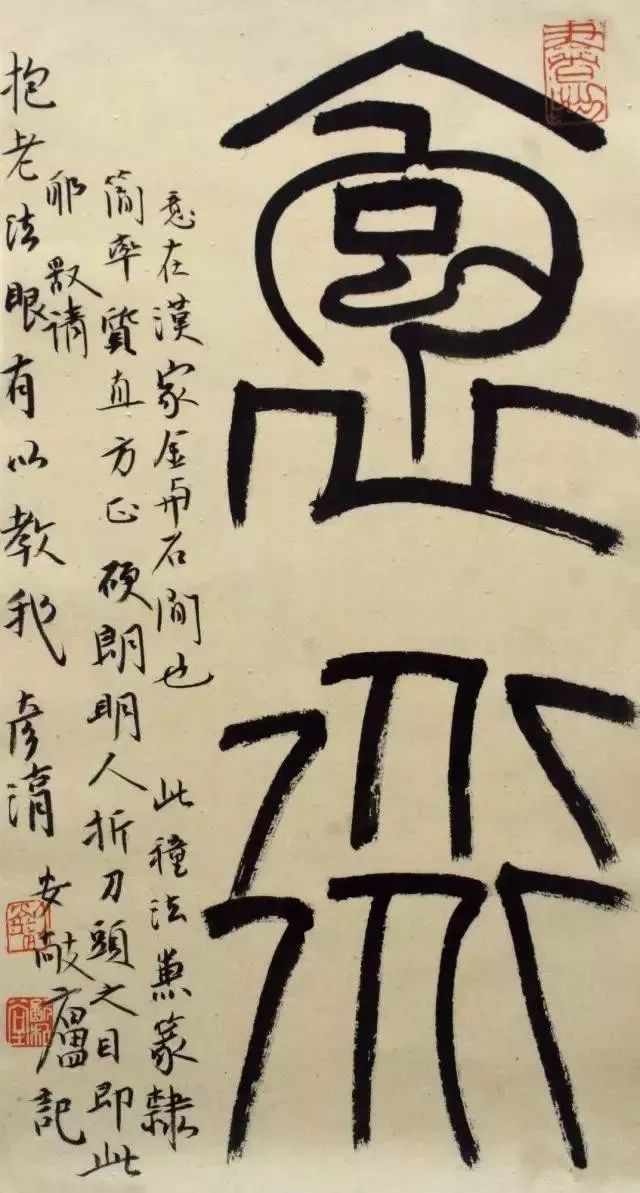 意在漢家金与石間也 此種法兼篆隸
簡率質直方正硬朗明人折刀頭之目即此
耶 敢請
抱老法眼有以教我 彦湑
敲廬記